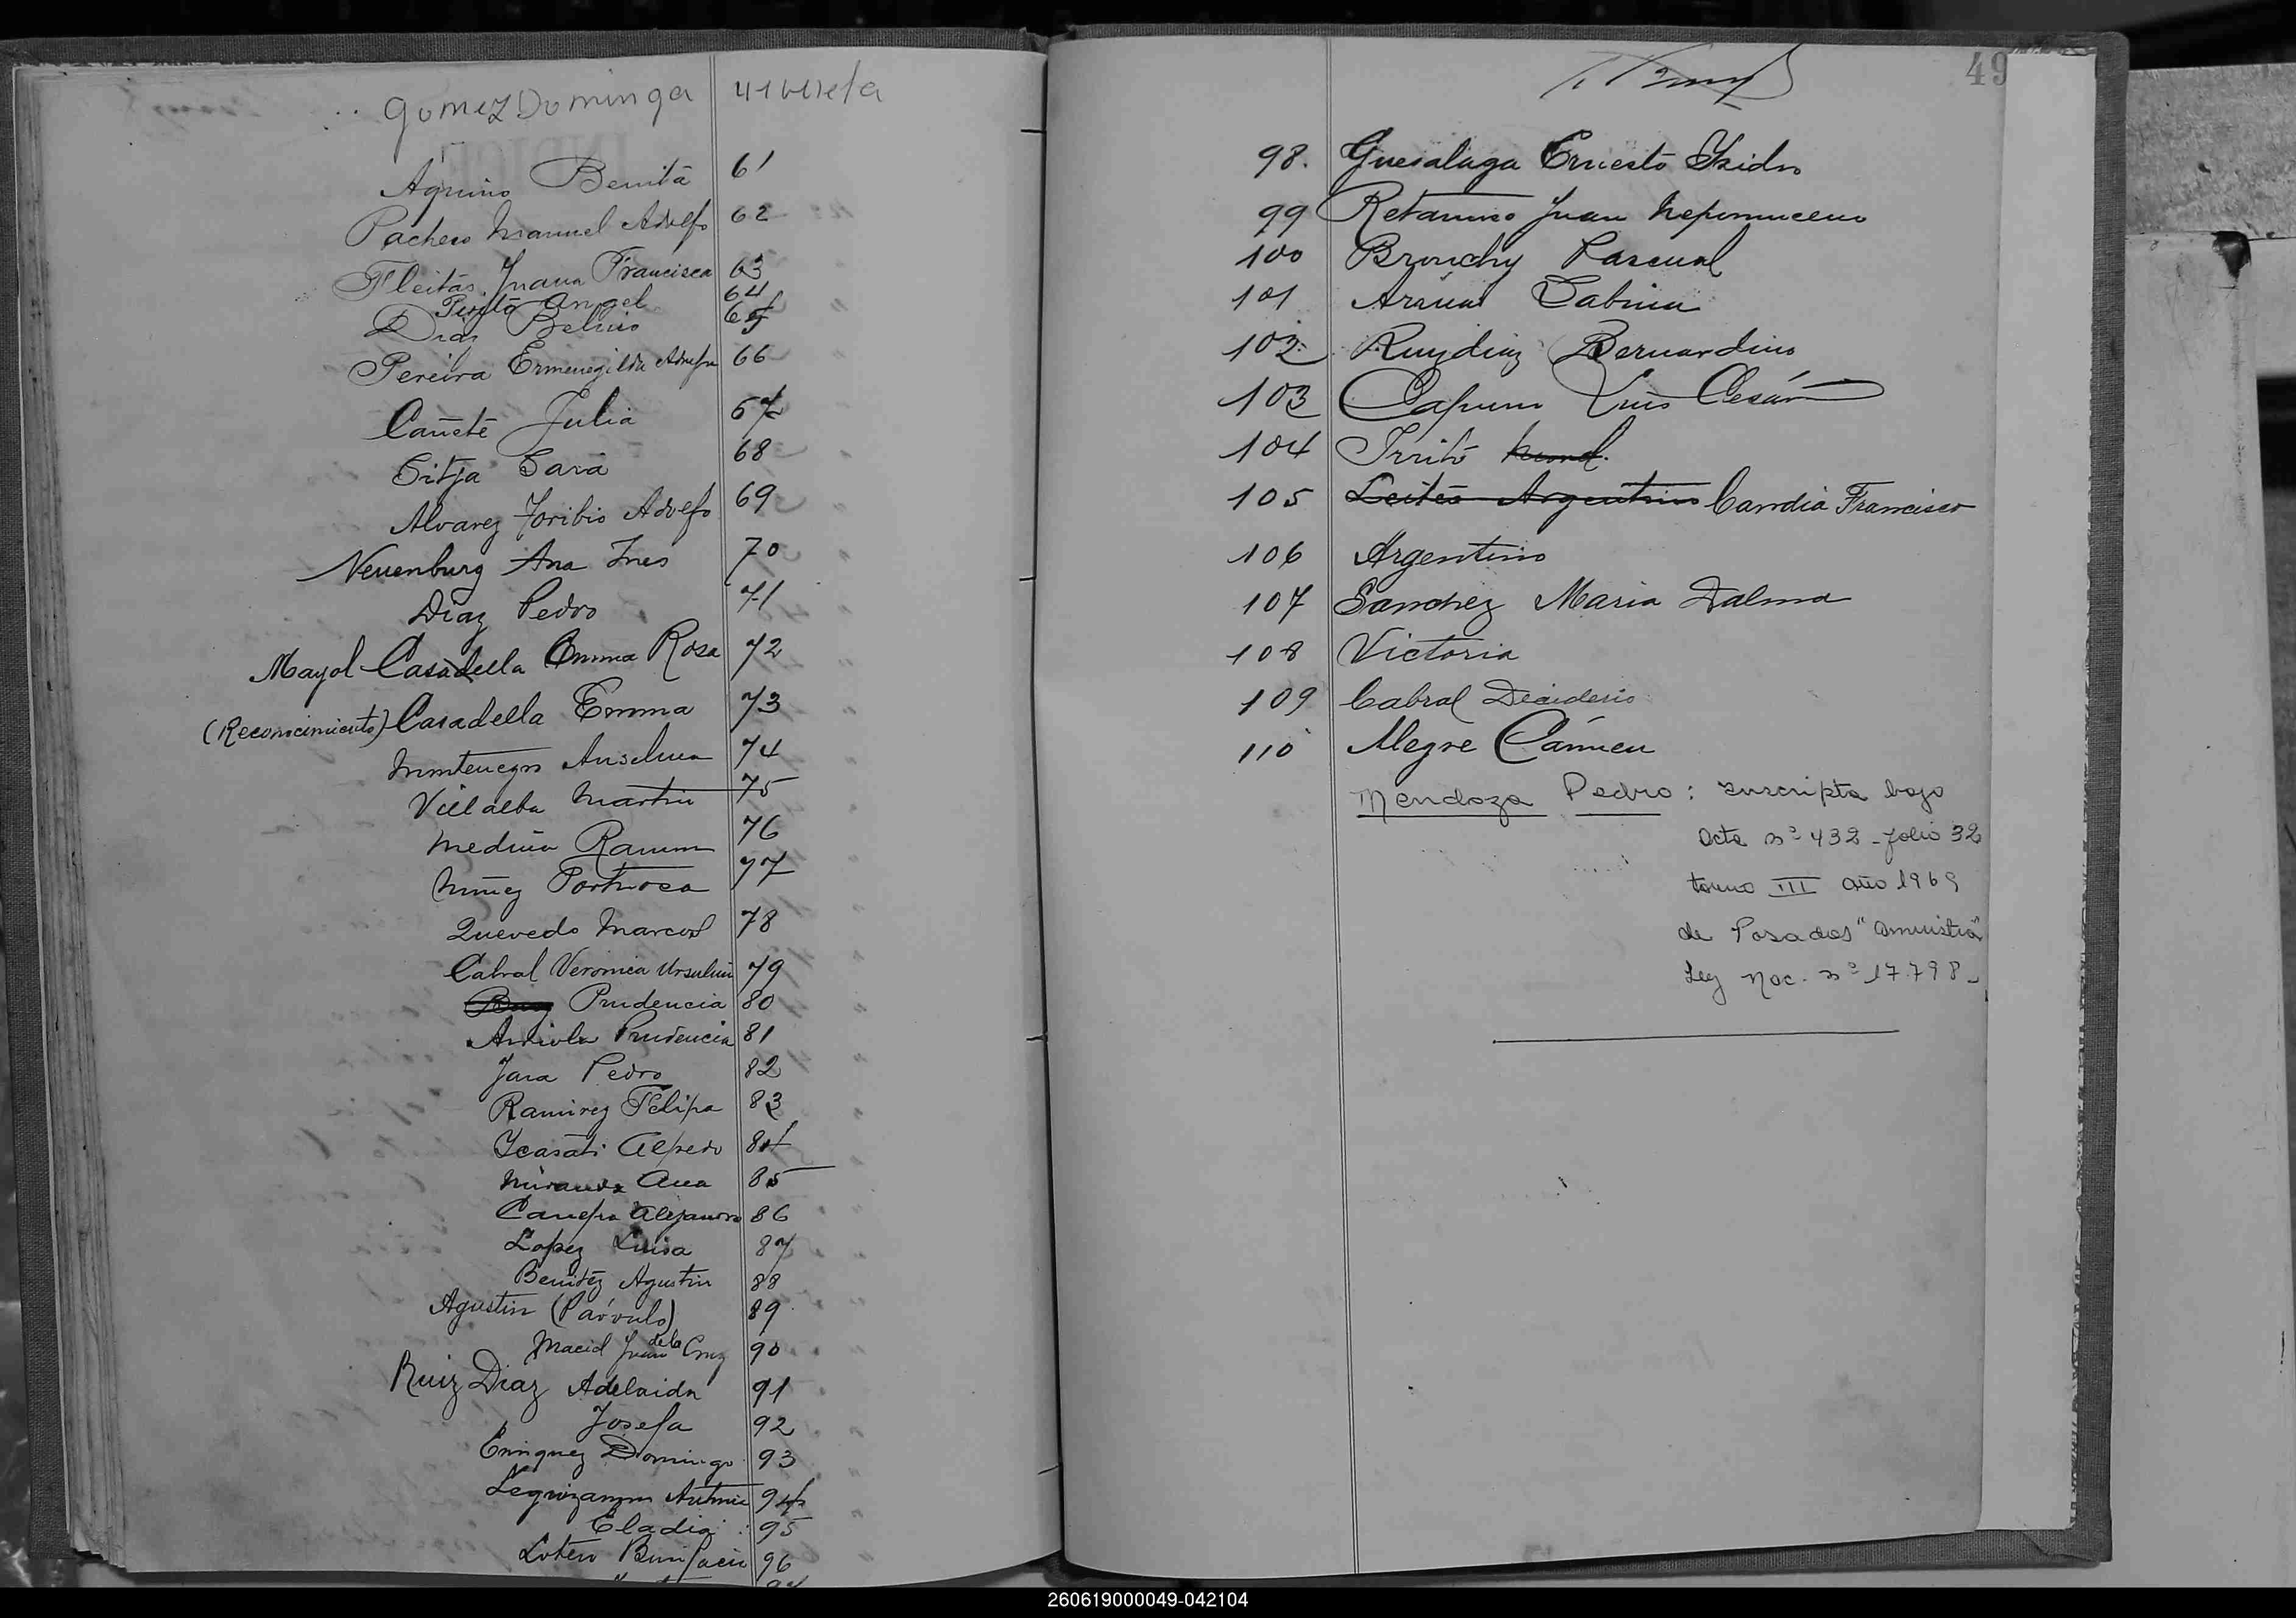 Gomez Dominga 41 vuelta
Aquino Benita 61
Pacheco Manuel Adolfo 62
Fleitas Juana Francisca 63
Angel 64
Dias Belnio 65
Pereira Ermenegilda Adolfa 66
Cañete Julia 67
Sitja Sara 68
Alvarez Toribio Adolfo 69
Neuenburg Ana Ines 70
Diaz Pedro 71
Mayol-Casadella Emma Rosa 72
(Reconocimiento) Casadella Emma 73
Montenegro Anselma 74
Villalba Martin 75
Medina Ramon 76
Nuñez Portuosa 77
Quevedo Marcos 78
Cabral Veronica Ursulina 79
Prudencia 80
Arriola Prudencia 81
Jara Pedro 82
Ramirez Felipa 83
Icasati Alfredo 84
Miranda Ana 85
Canepa Alejandro 86
Lopez Luisa 87
Benitez Agustin 88
Agustin (Párvulo) 89
Maciel Juan de la Cruz 90
Ruiz Diaz Adelaida 91
Josefa 92
Enriquez Domingo 93
Leguizamon Antonia 94
Eladia 95
Sotero Bonifacio 96
49
98. Guesalaga Ernesto Isidro
99 Retamozo Juan Nepomuceno
100 Bronchy Pascual
101 Sabina
102 Ruydiaz Bernardino
103 Luis Cesár
104
105 Leites Argentino Candia Francisco
106 Argentino
107 Sanchez Maria Dalma
108 Victoria
109 Cabral Deciderio
110 Alegre Cármen
Mendoza Pedro: inscripta bajo
Acta nº 432 - folio 32
tomo III año 1969
de Posadas "amnistia"
Ley Nac. nº 17.798-
260619000049-042104